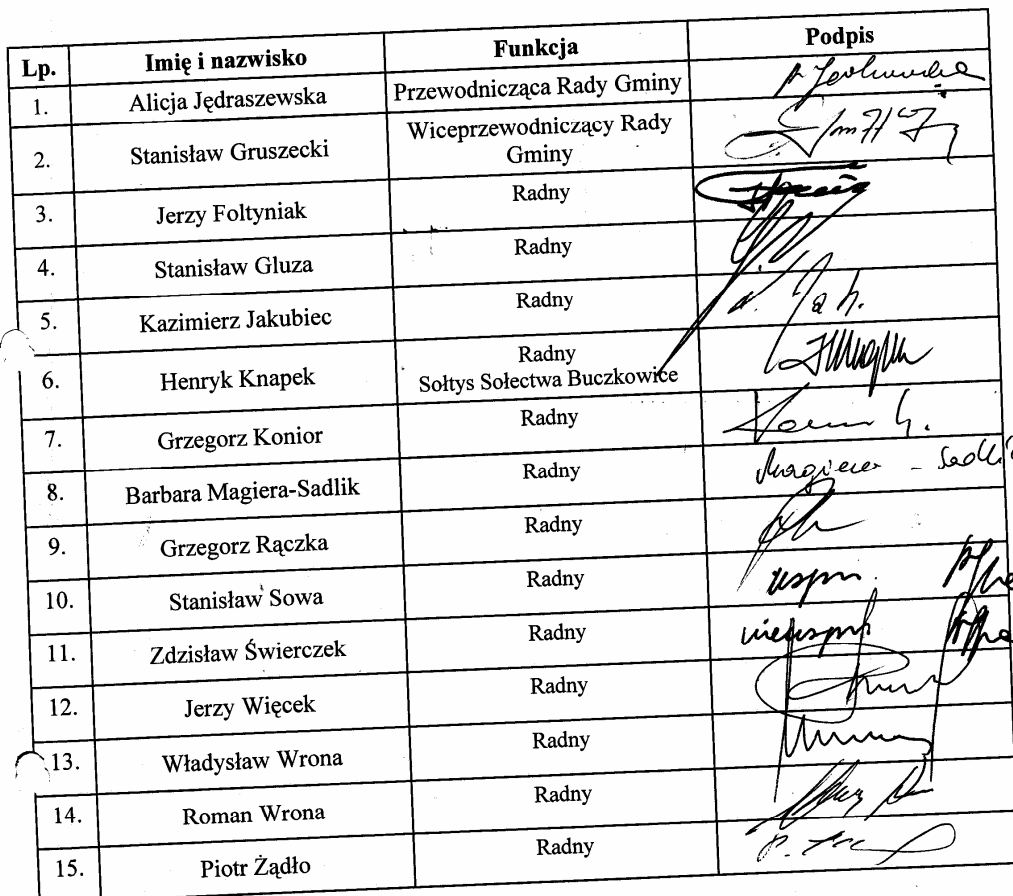 Lp. Imię i nazwisko Funkcja Podpis
1. Alicja Jędraszewska Przewodnicząca Rady Gminy
2. Stanisław Gruszecki Wiceprzewodniczący Rady
Gminy
3. Jerzy Foltyniak Radny
4. Stanisław Gluza Radny
5. Kazimierz Jakubiec Radny
6. Henryk Knapek Radny
Sołtys Sołectwa Buczkowice
7. Grzegorz Konior Radny
8. Barbara Magiera-Sadlik Radny Magiera - Sadlik
9. Grzegorz Rączka Radny
10. Stanisław Sowa Radny uspr.
11. Zdzisław Świerczek Radny nieuspr.
12. Jerzy Więcek Radny
13. Władysław Wrona Radny
14. Roman Wrona Radny
15. Piotr Żądło Radny